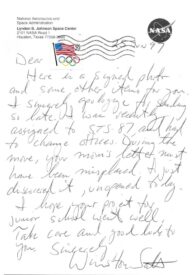 National Aeronautics and
Space Administration
Lyndon B. Johnson Space Center
2101 NASA Road 1
Houston, Texas 77058-3696
NASA
USA
Dear
Here is a signed photo
and some other items for you.
I sincerely apologize for sending
so late. I was recently
assigned to STS 87 and had
to change offices. During the
move, your mom's letter must
have been misplaced. I just
discovered it, unopened today.
I hope your project for
junior school went well.
Take care and good luck to
you. Sincerely
Winston Scott